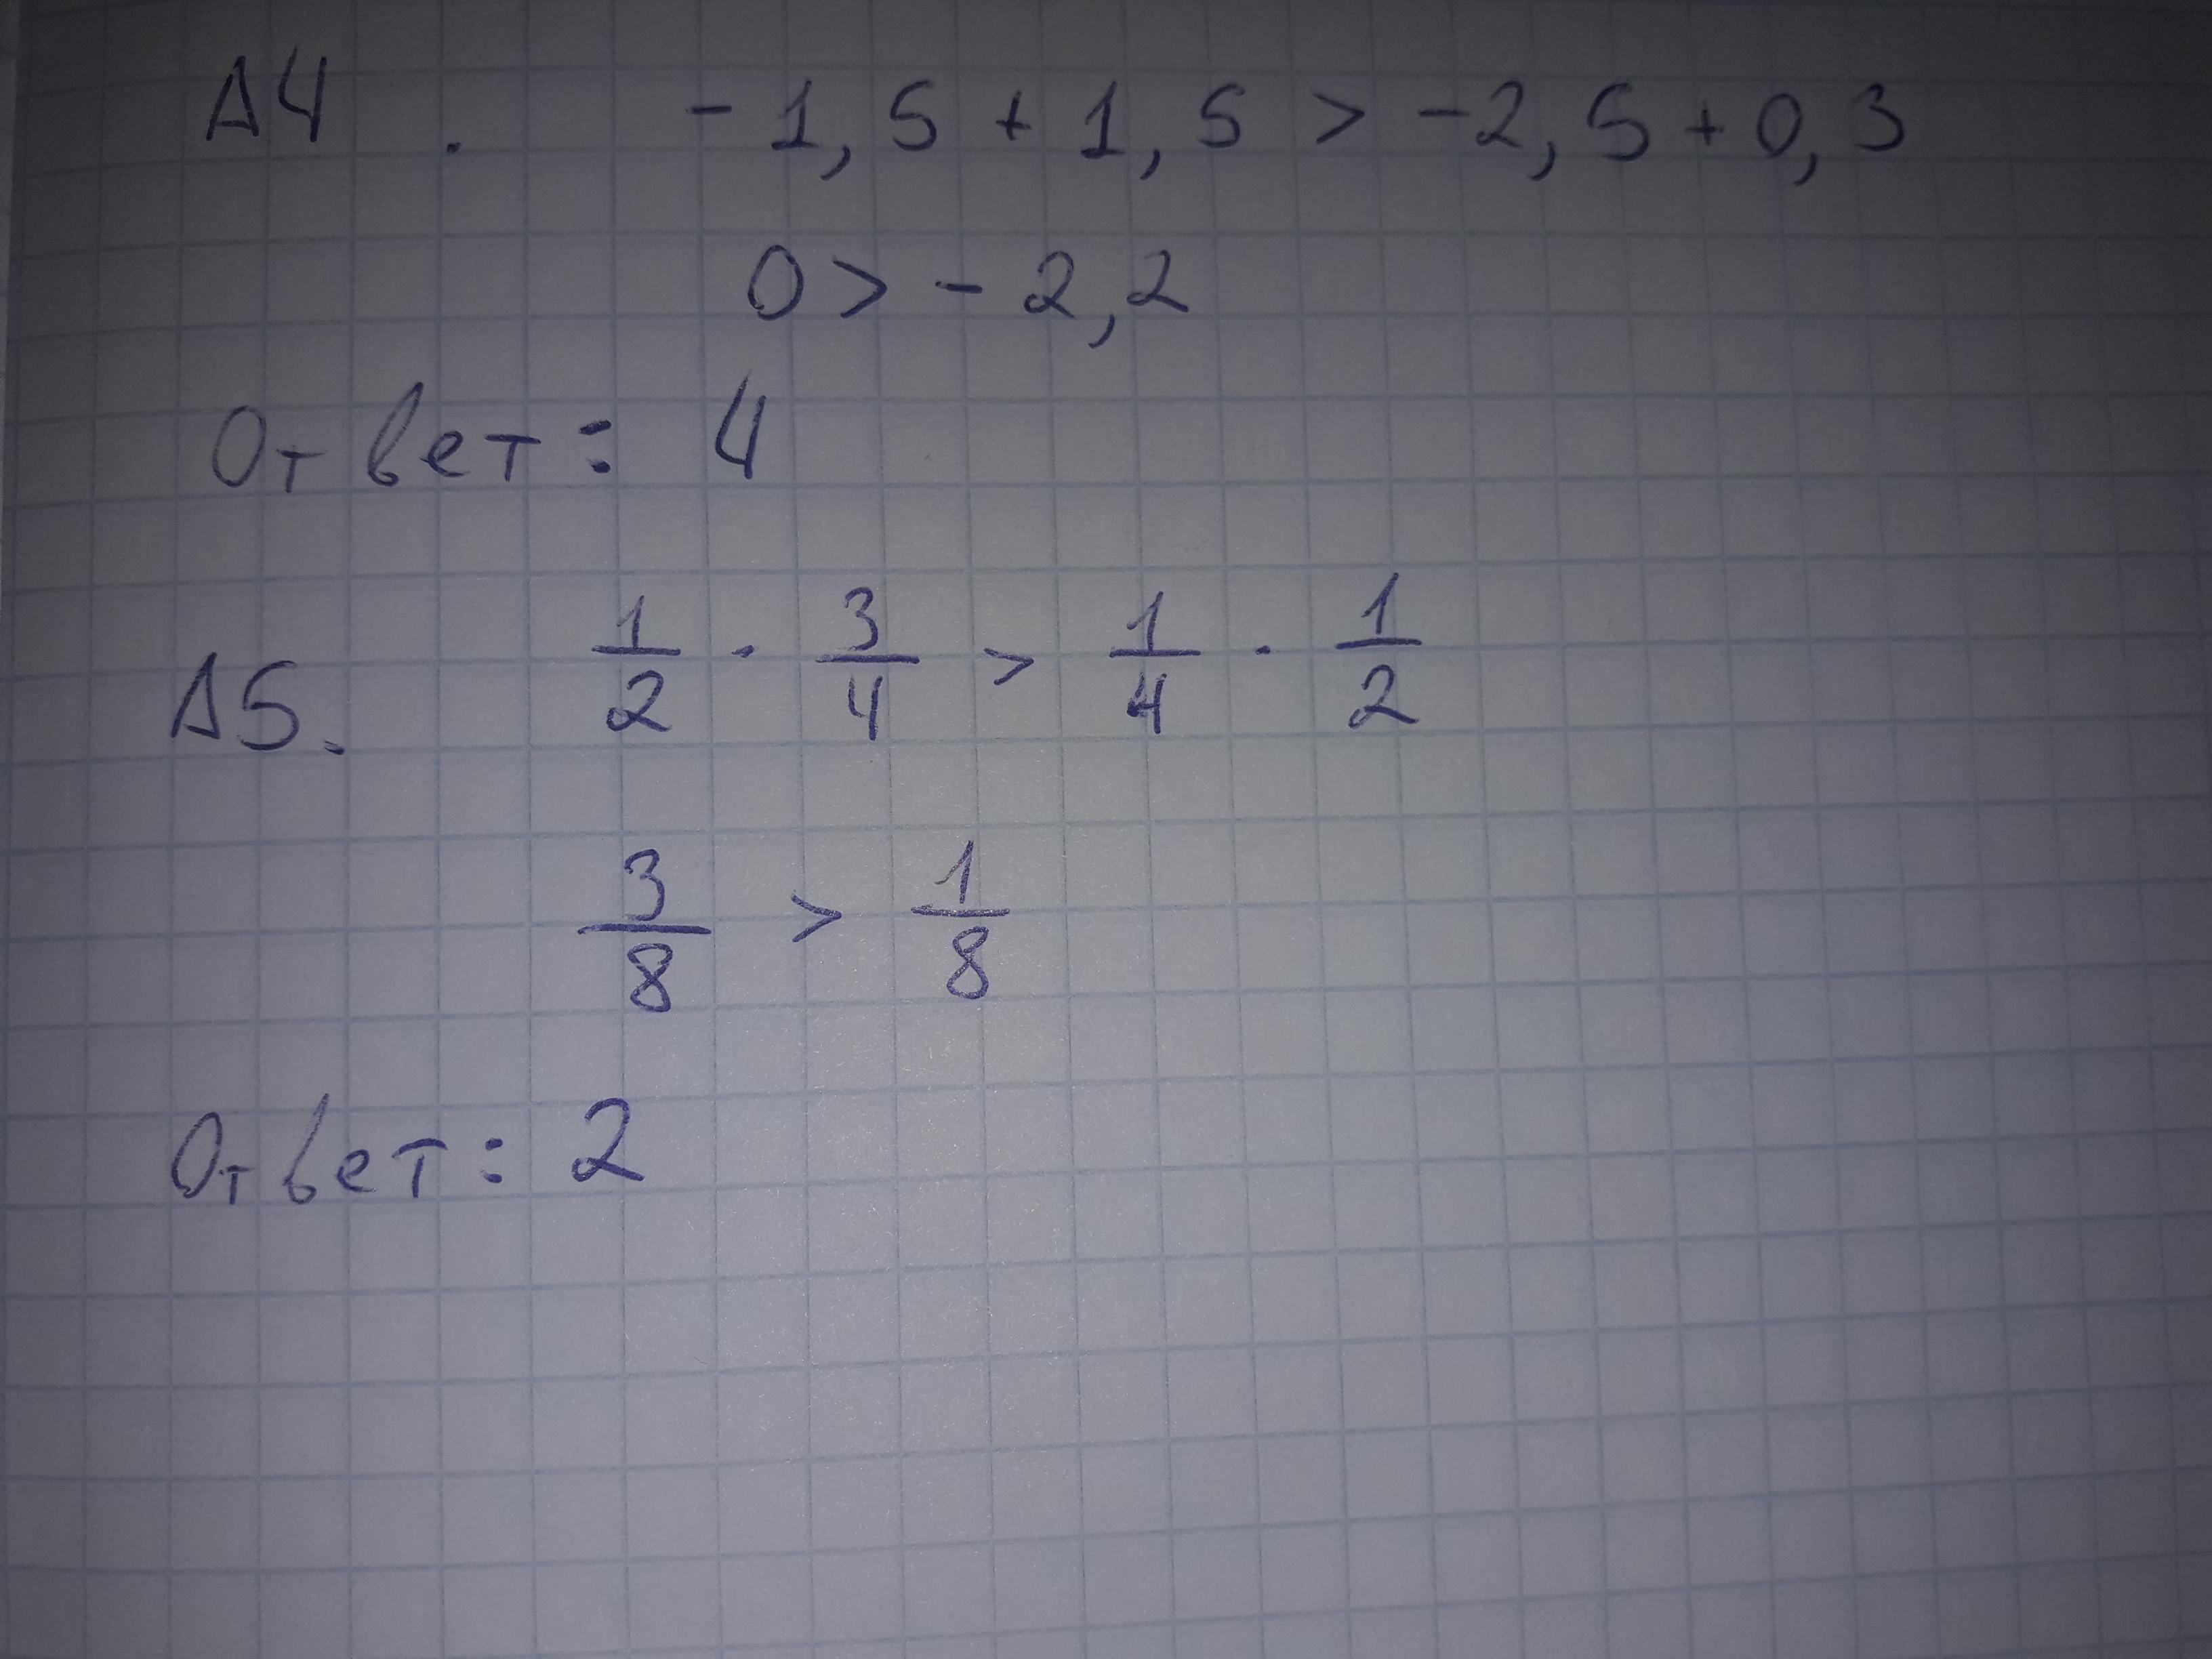 А4. -1,5 + 1,5 > -2,5 + 0,3
0 > -2,2
Ответ: 4
А5. 1/2 · 3/4 > 1/4 · 1/2
3/8 > 1/8
Ответ: 2